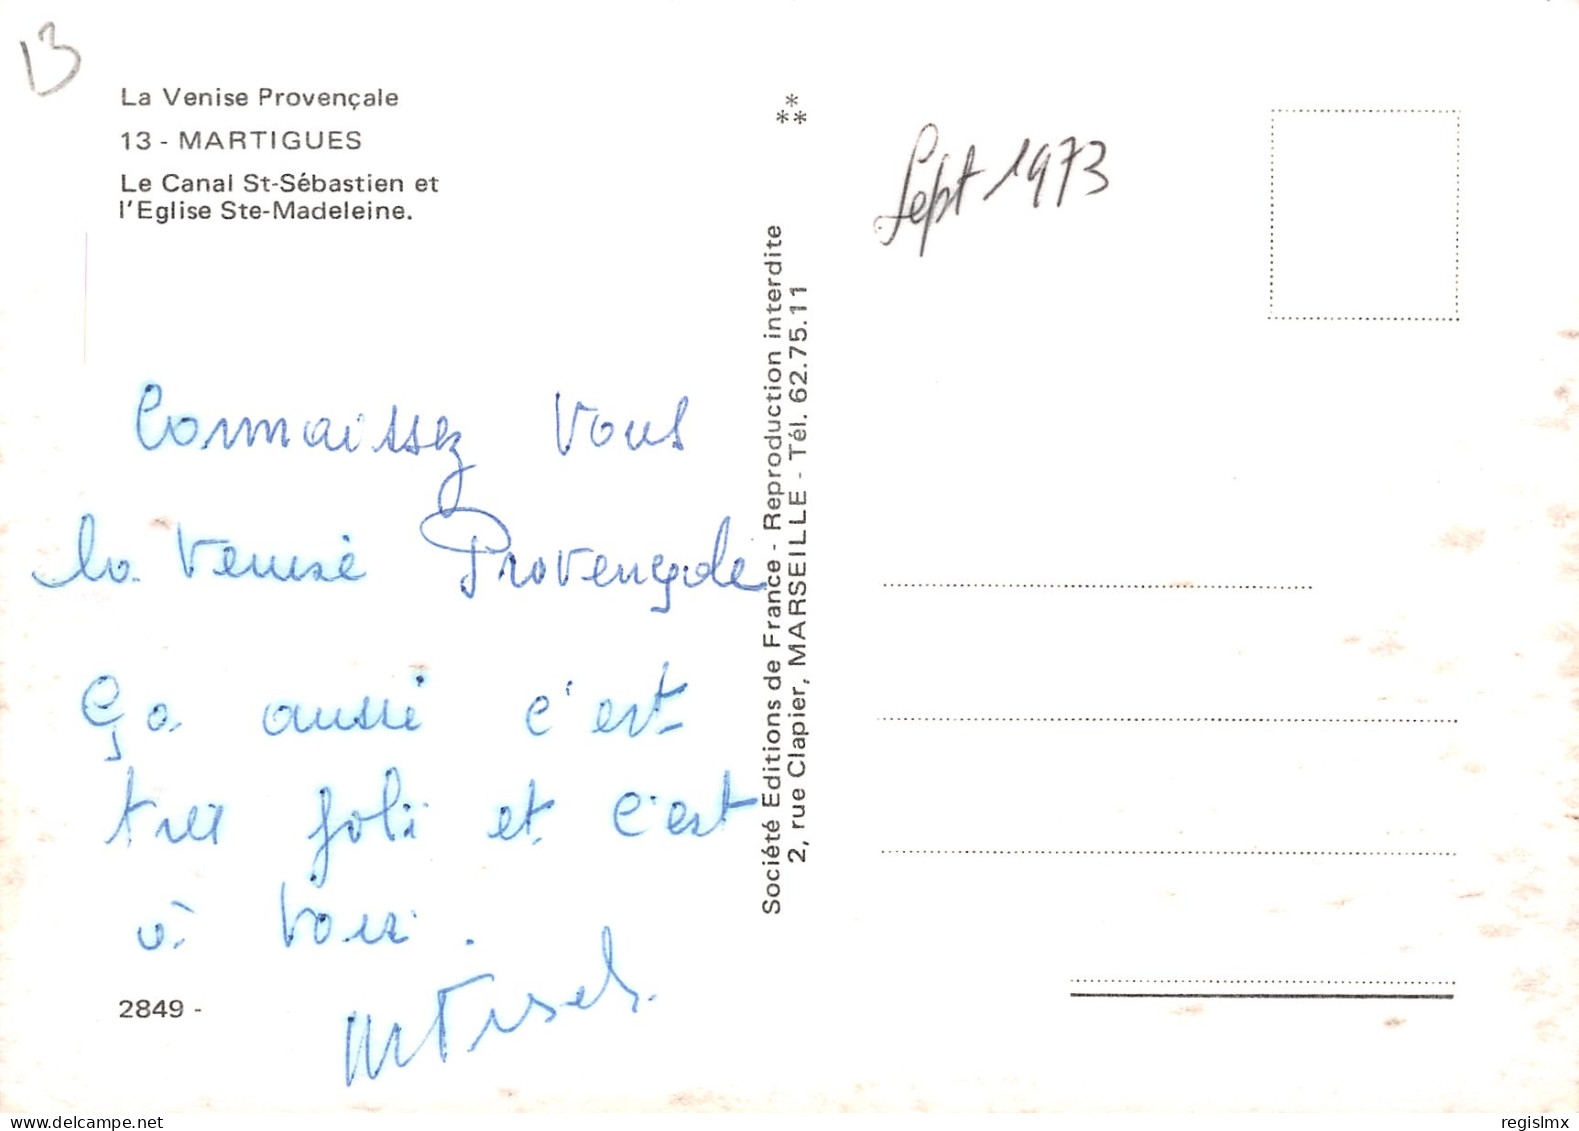 13
La Venise Provençale
13 - MARTIGUES
Le Canal St-Sébastien et
l'Eglise Ste-Madeleine.
Connaissez Vous
la Venise Provençale
Ça aussi c'est
tres joli et c'est
à voir.
2849 -
**
*
Société Editions de France - Reproduction interdite
2, rue Clapier, MARSEILLE - Tél. 62.75.11
Sept 1973
regislmx